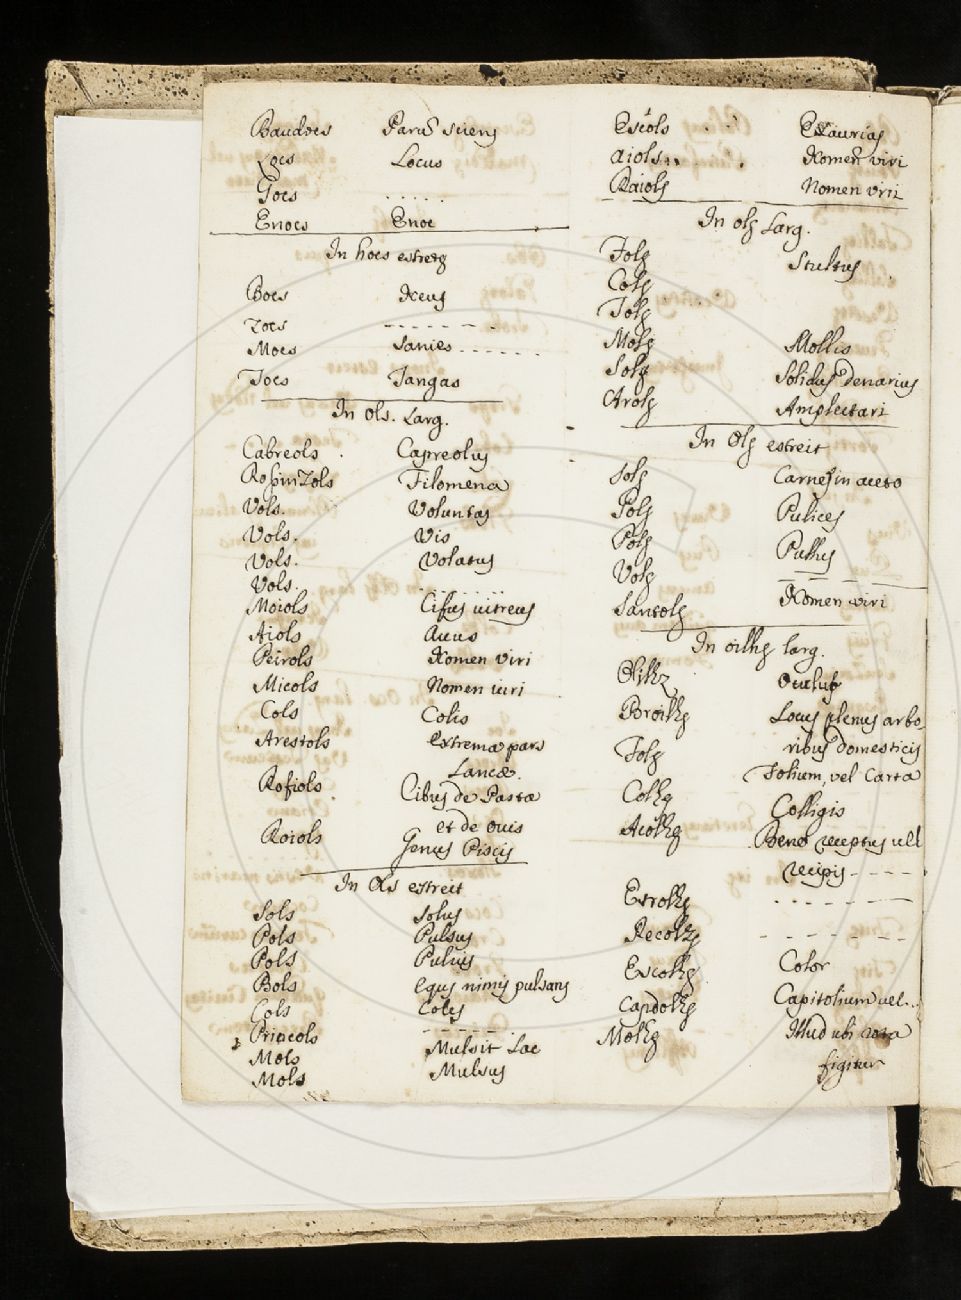 Baudoes Parum sciens
Zoes Locus
Goes . . . . .
Enoes Enoc
In hoes estretz
Boes Xeus
Zoes - - - - - - -
Moes Sanies . . . . . .
Toes Tangas
In ols. Larg.
Cabreols . Capreolus
Rossinzols Filomena
Vols. Voluntas
Vols. Vis
Vols. Volatus
Vols. . . . . . .
Moiols Cifus uitreus
Aiols Auus
Peirols Nomen viri
Micols Nomen uiri
Cols Colis
Arestols extrema pars
Lanceæ.
Rofiols Cibus de Pasta
et de ouis
Roiols Genus Piscis
In Ols estreit
Sols Solus
Pols Pulsus
Pols Puluis
Bols Equs nimis pulsans
Cols Coles
Prineols - - - - - -
Mols Mulsit Lac
Mols Mulsus
Escols . . . Exaurias
Aiols . . . Nomen viri
Raiols Nomen viri
In olz Larg.
Folz Stultus
Colz
Tolz
Molz Mollis
Solz Solidus denarius
Arolz Amplectari
In Olz estreit
Solz Carnes in aceto
Polz Pulices
Polz Pullus
Volz - - - -
Santolz Nomen viri
In oilhz larg.
Oilhz Oculus
Broilhz Locus plenus arbo
ribus domesticis
Folz Folium, vel Carta
Colhz Colligis
Acolhz Bene receptus uel
recipis - - - -
Estrolhz - - - - - -
Recolhz - - - - - -
Escolhz Color
Capdolhz Capitolium uel . .
Molhz Illud ubi rota
figitur